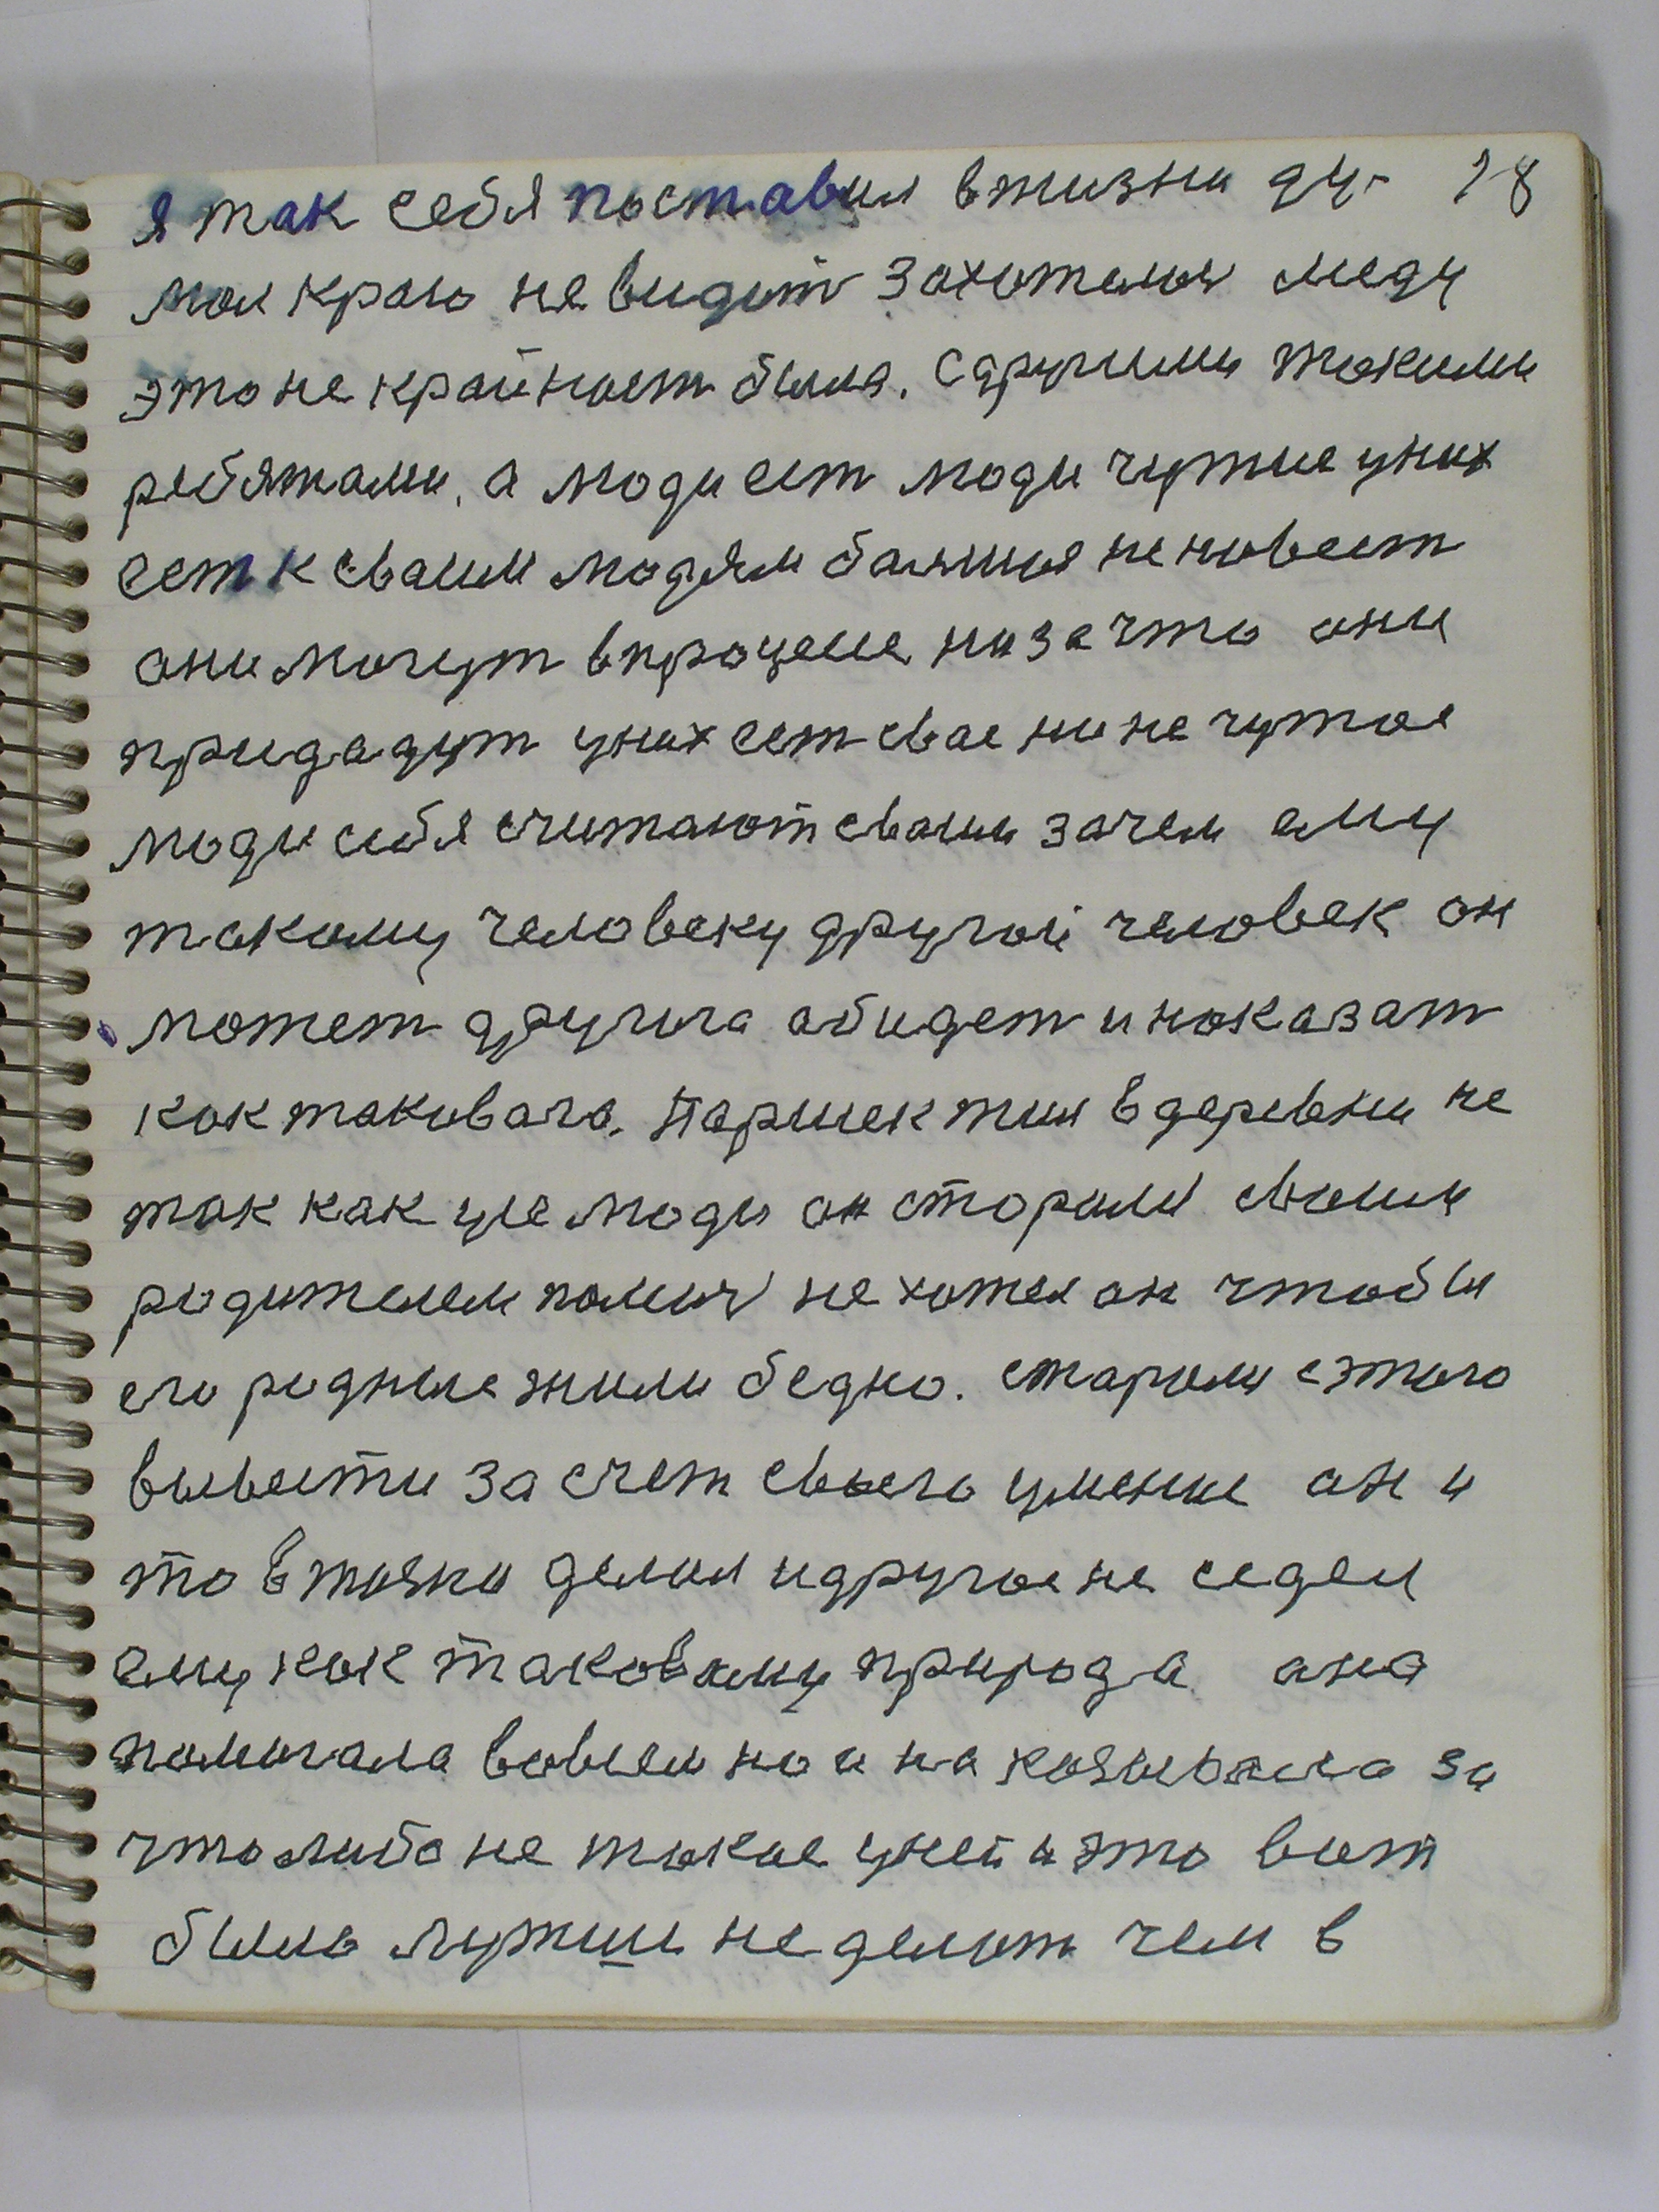 я так себя поставил в жизни ду- 18
мал краю не видит захотелся меду
это не крайност была. С другими такими
ребятами, а люди ест люди чужие у них
ест к сваим людям балшая неновест
они могут в процеме низачто они
придадут у них ест свае ни не чужое
люди себя считают сваим зачем аму
такому человеку другой человек он
может другога абидет и наказат
как таковаго. Паршек жил в деревни не
так как уле люди он сторалй своим
родителем помоч не хотел он чтобы
его родные жили бедно. старали с этого
вывести за счет своего умение он и
то в тяпки делал и другое не седел
аму как таковаму природа ана
помогала вовсем но и наказывала за
что либо не такое у ней и это вот
было лутши не делат чем в